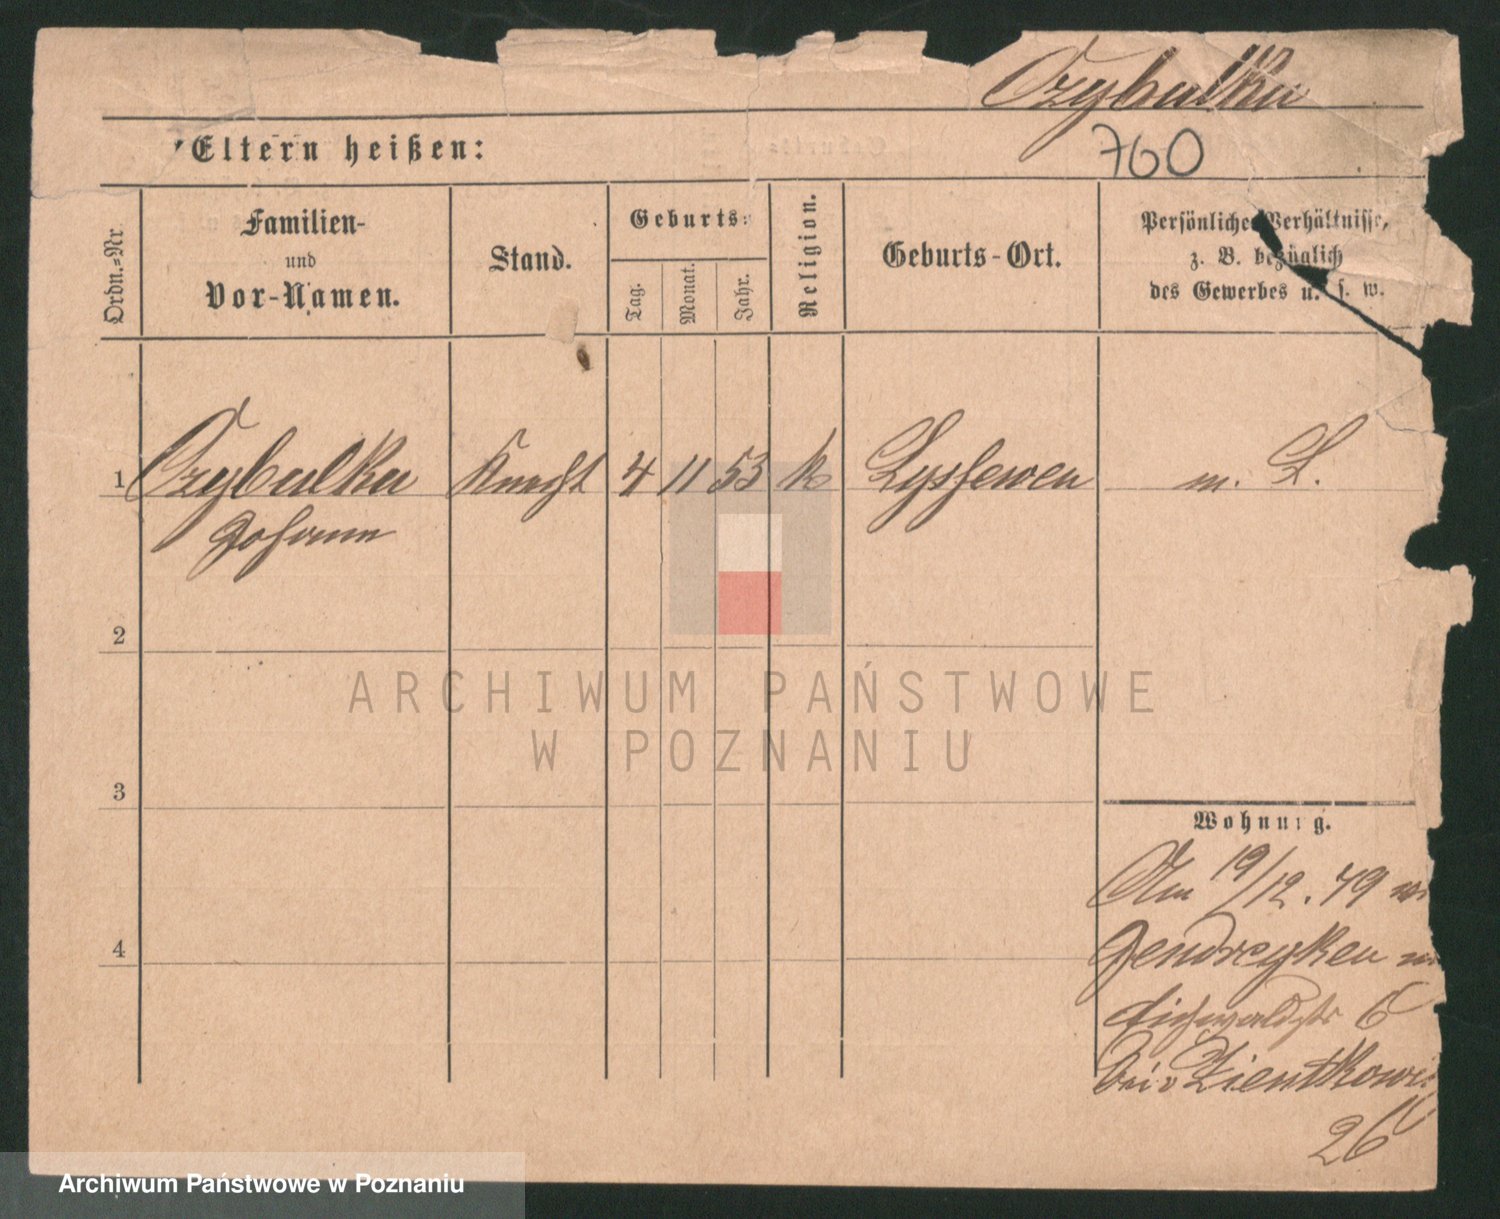 Czybulka
Eltern heißen:
760
Ordn.=Nr.
Familien-
und
Vor-Namen.
Stand.
Geburts:
Tag.
Monat.
Jahr.
Religion.
Geburts-Ort.
Persönliche Verhältnisse,
z. B. bezüglich
des Gewerbes u. s. w.
1 Czybulka Knecht 4 11 53 k Lyssewen m. L.
Johann
2
3
4
Wohnung.
Am 19/12. 79
Jendreyken
Eichwaldstr 6
bei Zientkowi
26
ARCHIWUM PAŃSTWOWE
W POZNANIU
Archiwum Państwowe w Poznaniu